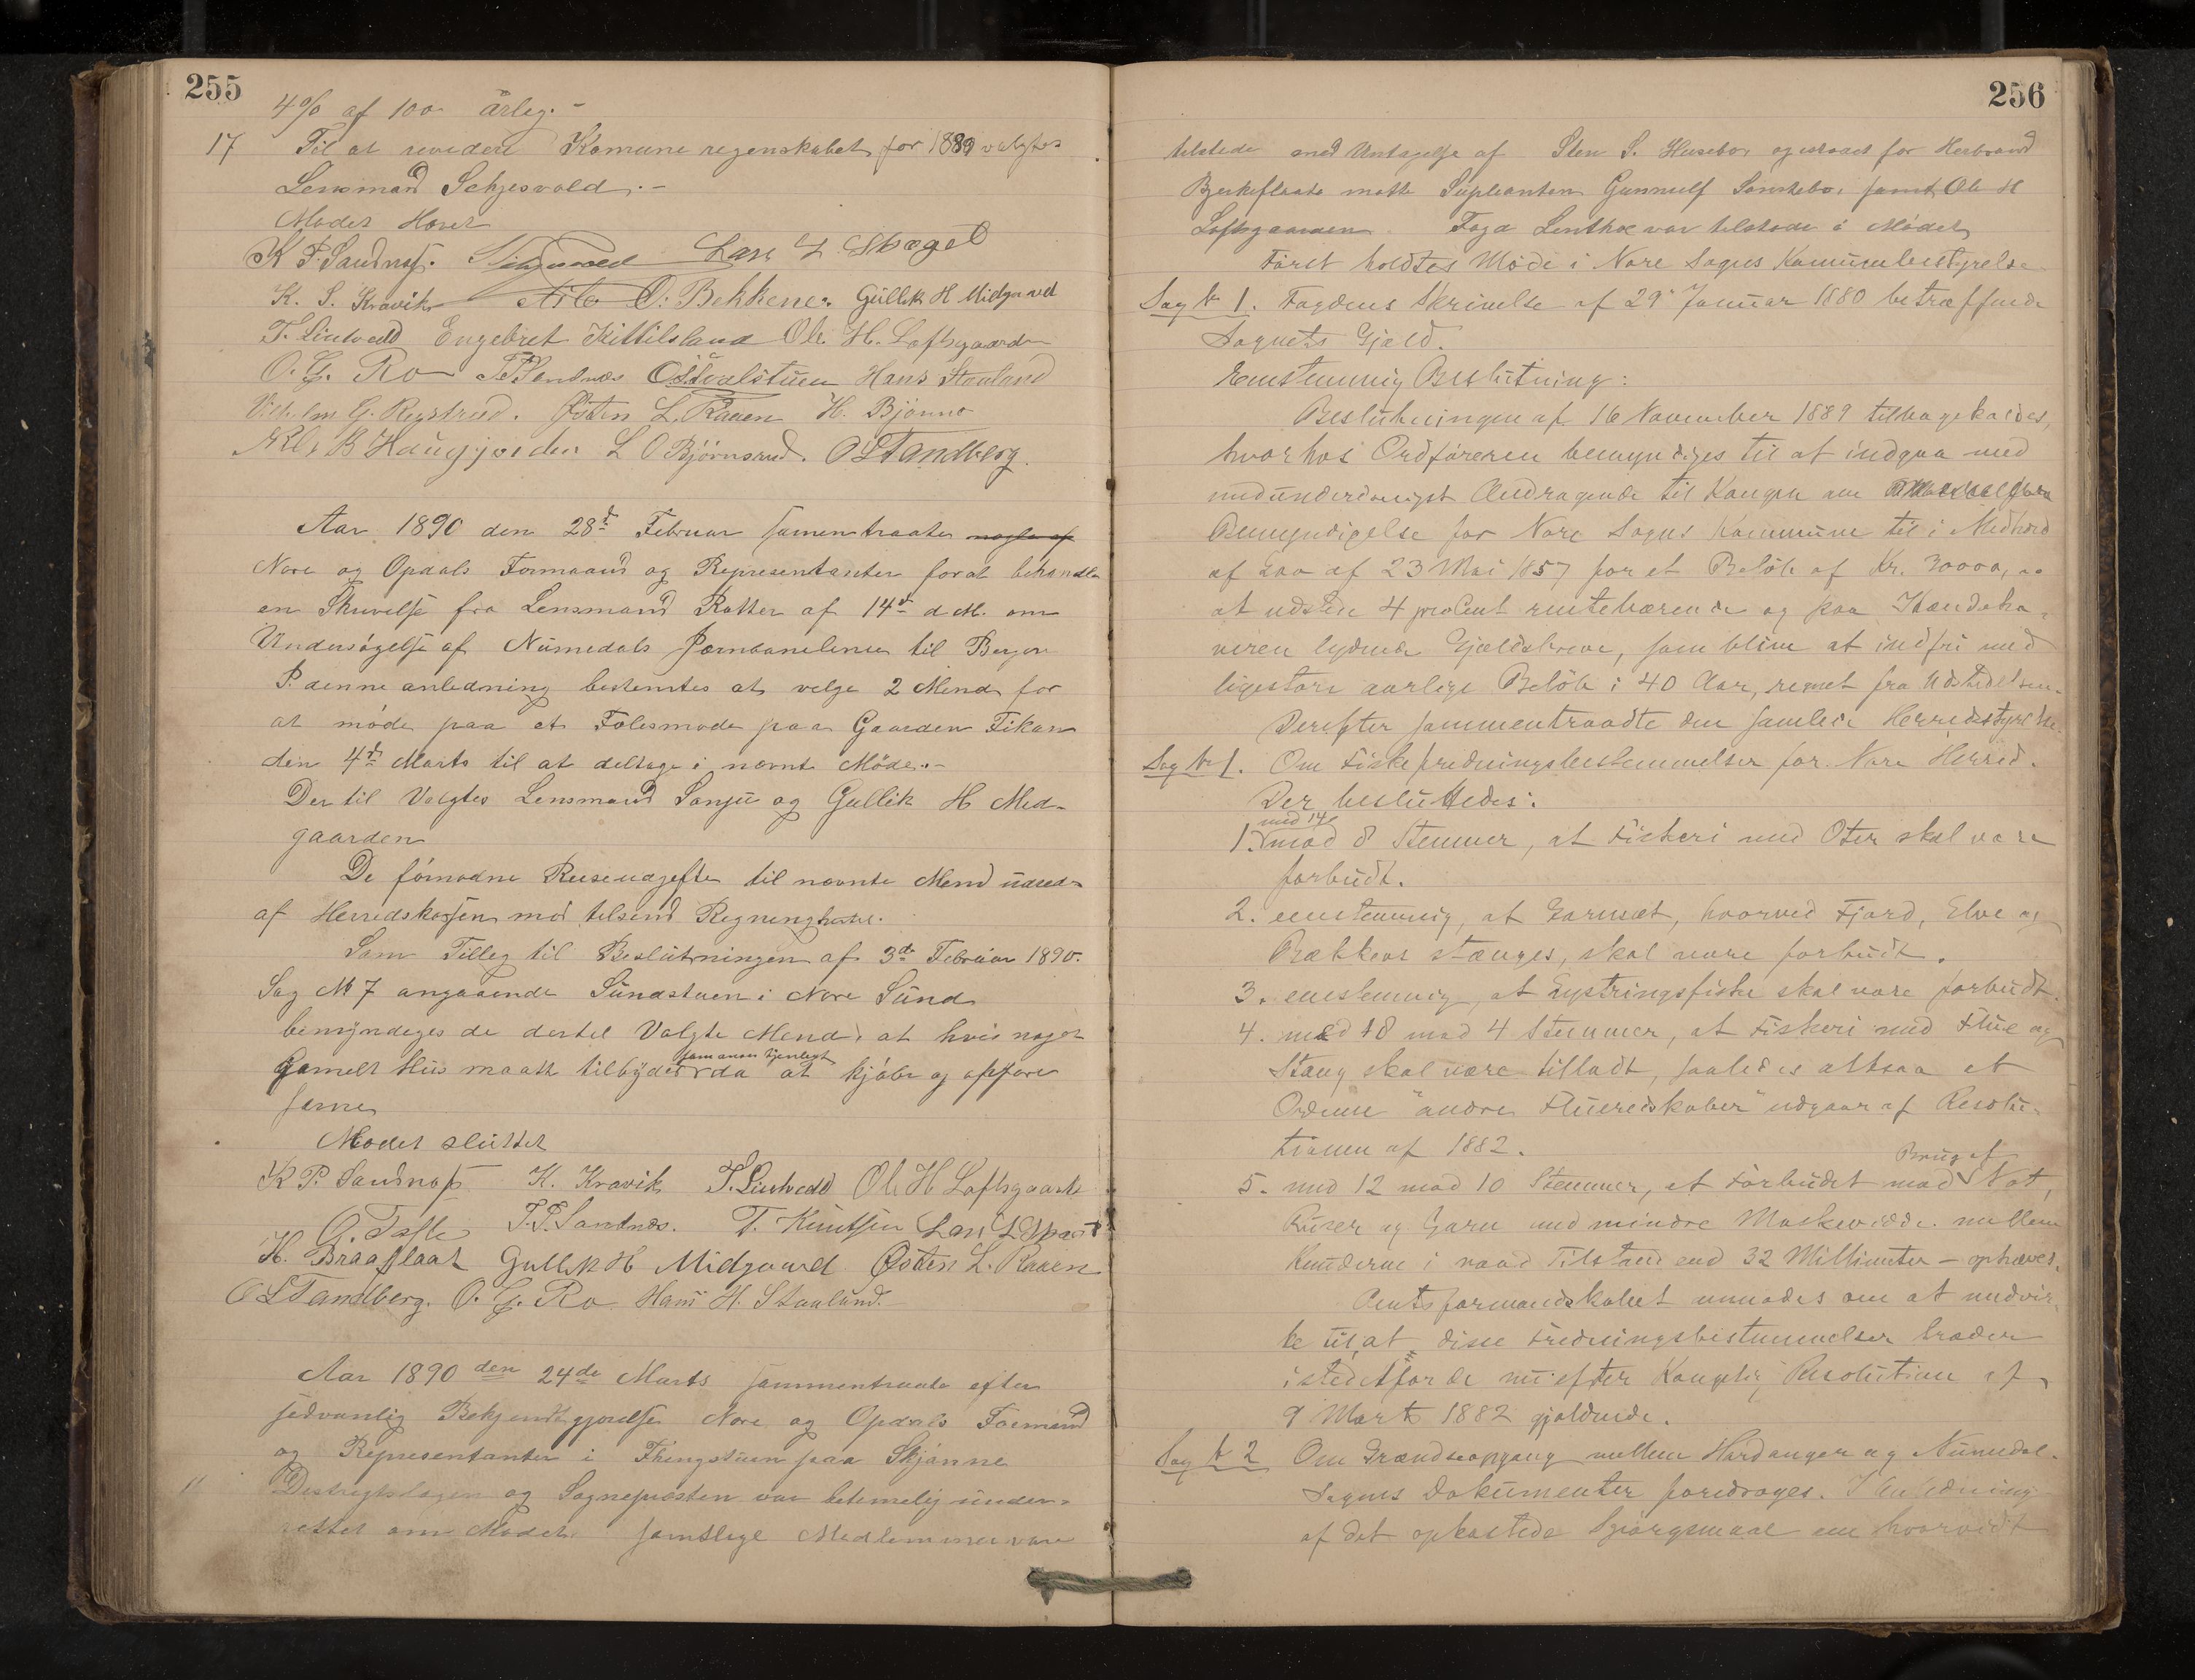 255
4% af 100 årleg.-
17 Til at revidere Komune regenskabet for 1889 valgtes
Lensmand Schjesvold.-
Mødet Hævet
K P. Sandnæs. Lars L Skaget
K. S. Kravik O. Bekkene. Gullik H Midgaard
T. Lintvedt Engebret Kittilsland Ole H. Loftsgaarden
O. G. Ro T.P. Sandnæs Hans Stauland
Vilhelm G. Regstrud. Østen L. Raaen H. Bjønno
Nils B Haugjorden L O Bjørnsrud. O L Tandberg.
Aar 1890 den 28d Februar samentraate nogle af
Nore og Opdals Formænd og Representanter forat behandle
en Skrivelse fra Lensmand Ratter af 14d d M. om
Undersøgelse af Numedals Jærnbanelinie til Bergen
P. denne anledning bestemtes at velge 2 Mend for
at møde paa et Folesmøde paa Gaarden Fikan
den 4d Marts til at deltage i nevnt Møde.-
Der til Valgtes Lensmand Sanju og Gullik H Mid-
gaarden
De førnødne Reiseudgefter til nevnte Mend udred-
af Herredskassen mod tilsend Regning
Som Tilleg til Beslutningen af 3de Februar 1890.
Sag N 7 angaaende Sundstuen i Nore Sund
bemyndeges de dertil Valgte Mend, at hvis noget
som anses tjenligt
Gamelt Hus maatte tilbydes da at kjøbe og opføre
same
Mødet sluttet
K P. Sandnæs K. Kravik T. Lintvedt Ole H Loftsgaard
O. Tofte T. P. Sandnes. T. Knutsen Lars L Skaget
H. Braaflaat Gullik H Midgaard Østen L. Raaen
O L Tandberg. O. G. Ro Hans H. Stauland.
Aar 1890 den 24de Marts sammentraate efter
sedvanlig Bekjendtgjørelse Nore og Opdals Formænd
og Representanter i Thingstuen paa Skjønne
" Destregtslægen og Sognepræsten var betimelig under-
rettet om Mødet. samtlege Medlemmer vare
256
tilstede med Undtagelse af Sten S. Husebø, og istædet for Herbrand
Bjerkeflaata møtte Supleanten Gunnulf Sønstebø, samt Ole H
Loftsgaarden. Foged Linthoe var tilstede i Mødet
Først holdtes Møde i Nore Sogns Kommunebestyrelse
Sag № 1. Fogdens Skrivelse af 29de Januar 1880 betræffende
Sognets Gjæld.
Enstemmig Beslutning:
Beslutningen af 16 November 1889 tilbagekaldes,
hvorhos Ordføreren bemyndiges til at indgaa med
underdanigst Andragende til Kongen om
Bemyndigelse for Nore Sogns Kommune til i Medhold
af Lov af 23 Mai 1857 for et Beløb af Kr. 30000,00
at udstede 4 procent rentebærende og paa Ihændeha-
veren lydende Gjældsbreve, som blive at indfri med
ligestore aarlige Beløb i 40 Aar, regnet fra Udstedelsen.
Derefter sammentraadte den samlede Herredstyrelse.
Sag № 1. Om Fiskefredningsbestemmelser for Nore Herred.
Der besluttedes:
med 14
1. mod 8 Stemmer, at Fiskeri med Oter skal være
forbudt.
2. eenstemmig, at Garnsæt, hvorved Fjord, Elve og
Bækkeos stænges, skal være forbudt.
3. enstemmig, at Lystringsfiske skal være forbudt.
4. med 18 mod 4 Stemmer, at Fiskeri med Flue og
Stang skal være tilladt, saaledes altsaa at
Ordene "andre Flueredskaber" udgaar af Resolu-
tionen af 1882.
Brug af
5. med 12 mod 10 Stemmer, at Forbudet mod Not,
Ruser og Garn med mindre Maskevidde mellem
Knuderne i vaad Tilstand end 32 Millimeter - ophæves.
Amtsformandskabet anmodes om at medvir-
ke til, at disse Fredningsbestemmelser træder
istedetfor de nu efter Kongelig Resolution af
9 Marts 1882 gjældende.
Sag № 2 Om Grændseopgang mellem Hardanger og Numedal.
Sagens Dokumenter foredroges. I Anledning
af det opkastede Spørgsmaal om hvorvidt